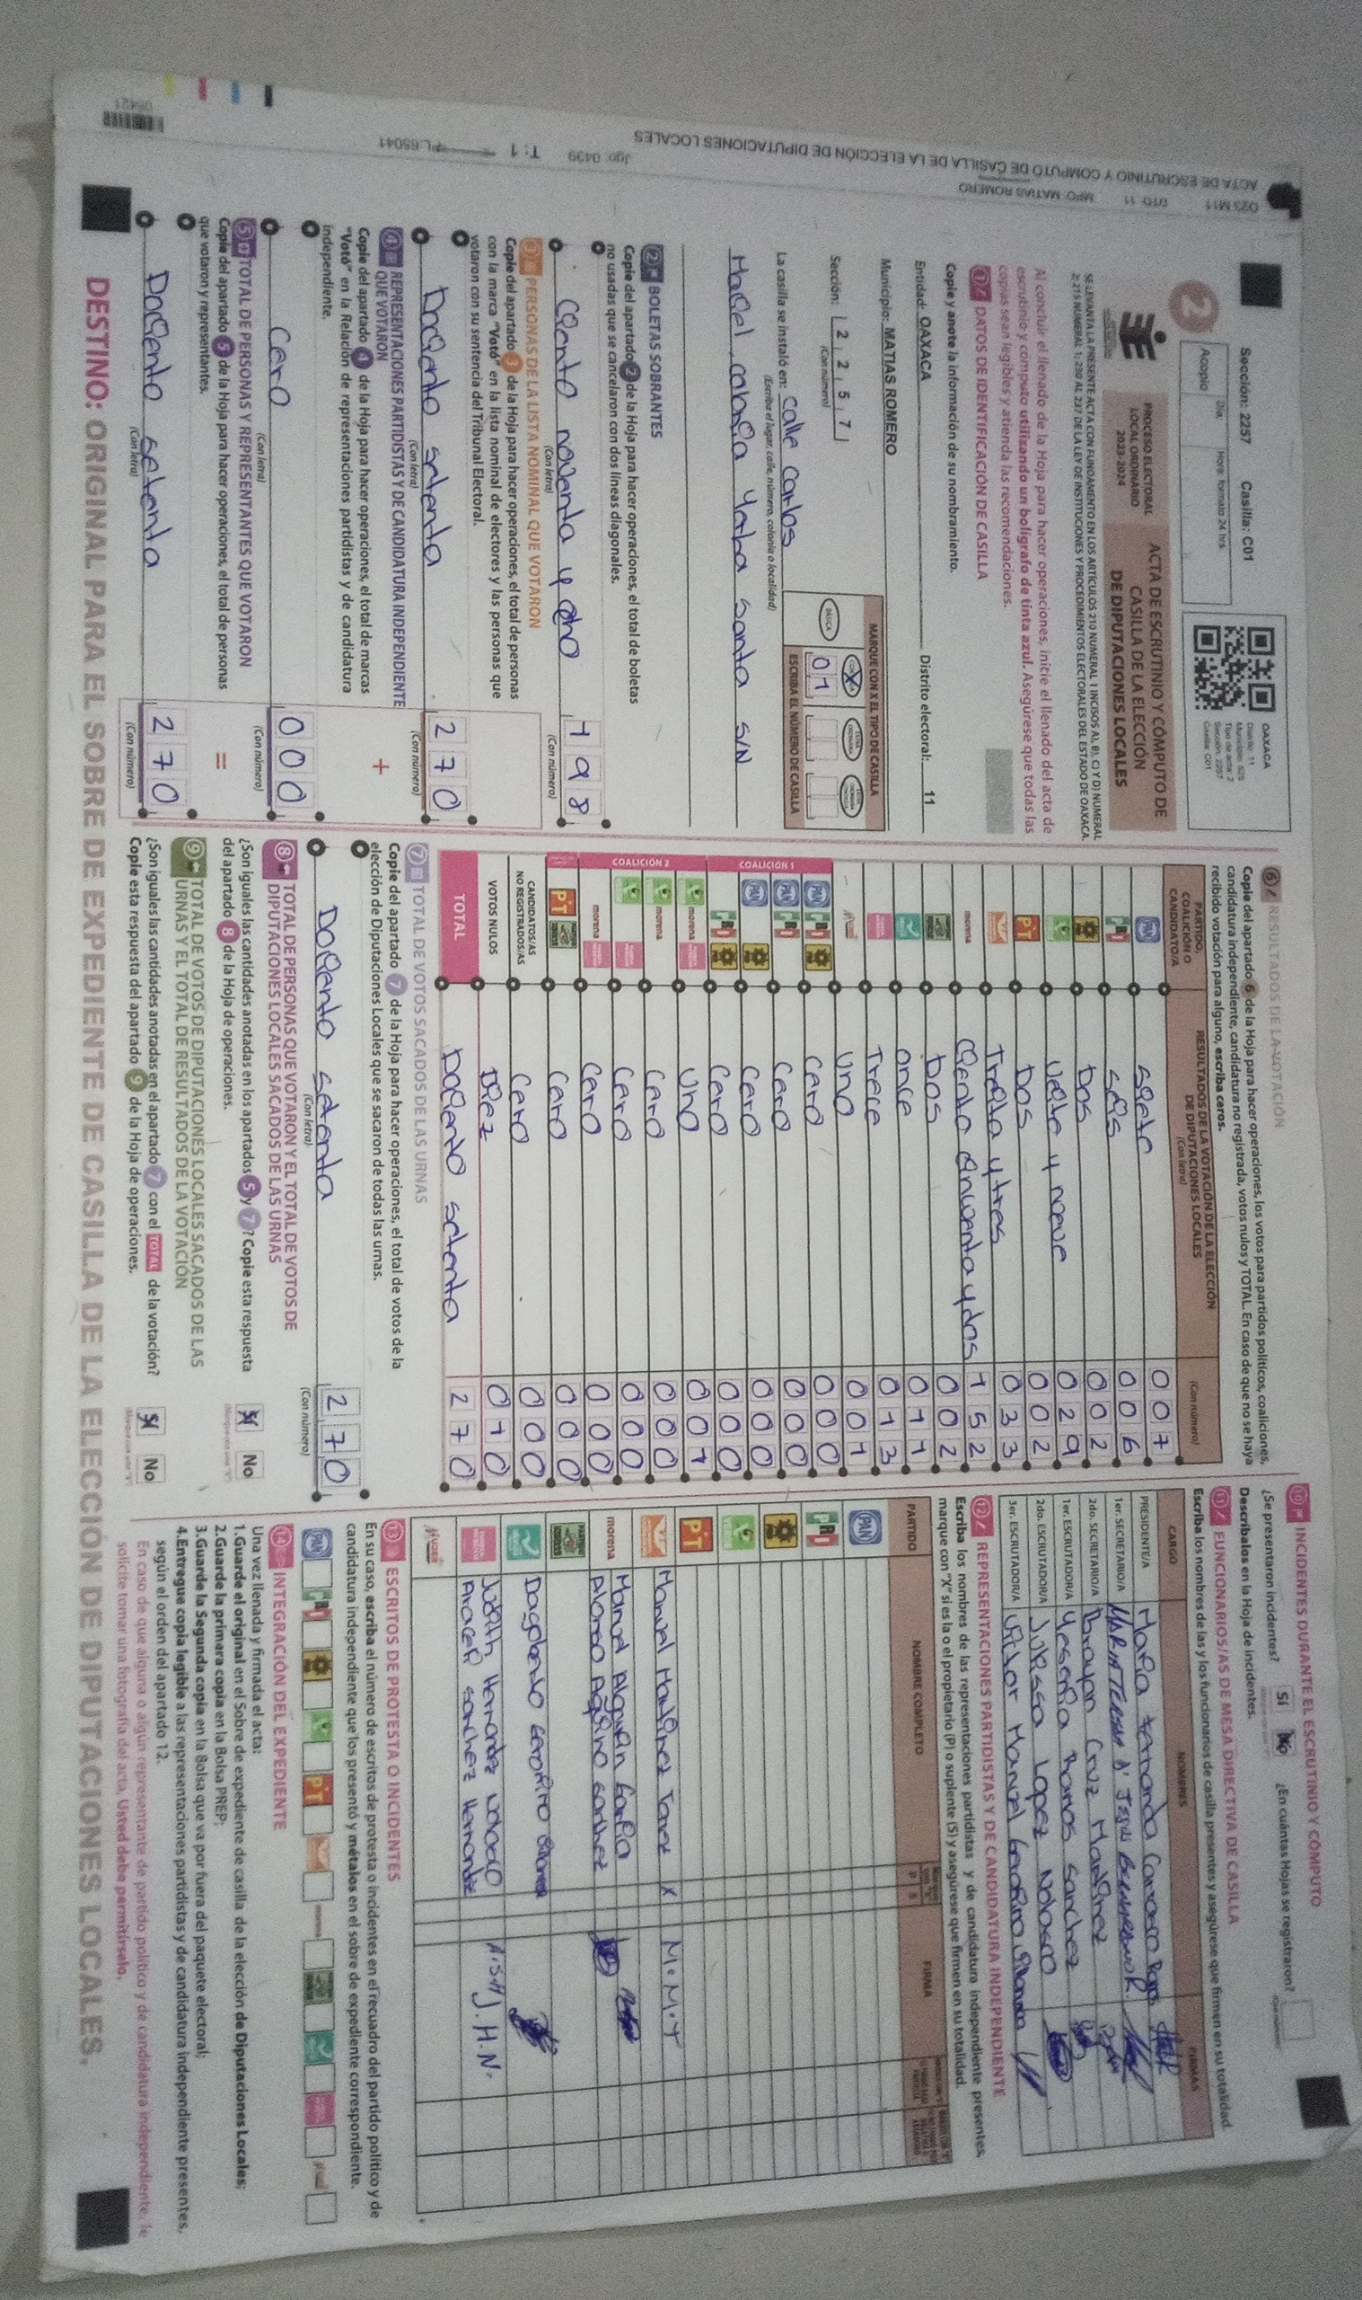 Sección: 2257 Casilla: C01
OAXACA
Distrito: 11
Sección: 2257
Casilla: C01
2
Acopio
Día
Hora formato 24 hrs.
PROCESO ELECTORAL
LOCAL ORDINARIO
2023-2024
ACTA DE ESCRUTINIO Y CÓMPUTO DE
CASILLA DE LA ELECCIÓN
DE DIPUTACIONES LOCALES
Al concluir el llenado de la Hoja para hacer operaciones, inicie el llenado del acta de
escrutinio y cómputo utilizando un bolígrafo de tinta azul. Asegúrese que todas las
copias sean legibles y atienda las recomendaciones.
1 DATOS DE IDENTIFICACIÓN DE CASILLA
Copie y anote la información de su nombramiento.
Entidad: OAXACA Distrito electoral: 11
Municipio: MATIAS ROMERO
Sección: 2 2 5 7
(Con número)
MARQUE CON X EL TIPO DE CASILLA
BÁSICA
X
01
ESCRIBA EL NÚMERO DE CASILLA
La casilla se instaló en: Calle Carlos
(Escriba el lugar, calle, número, colonia o localidad)
S/N
2 BOLETAS SOBRANTES
Copie del apartado 2 de la Hoja para hacer operaciones, el total de boletas
no usadas que se cancelaron con dos líneas diagonales.
Ciento noventa y ocho 198
(Con letra) (Con número)
3 PERSONAS DE LA LISTA NOMINAL QUE VOTARON
Copie del apartado 3 de la Hoja para hacer operaciones, el total de personas
con la marca "Votó" en la lista nominal de electores y las personas que
votaron con su sentencia del Tribunal Electoral.
Dociento setenta 270
(Con letra) (Con número)
4 REPRESENTACIONES PARTIDISTAS Y DE CANDIDATURA INDEPENDIENTE
QUE VOTARON
Copie del apartado 4 de la Hoja para hacer operaciones, el total de marcas
"Votó" en la Relación de representaciones partidistas y de candidatura
independiente.
+
Cero 000
(Con letra) (Con número)
5 TOTAL DE PERSONAS Y REPRESENTANTES QUE VOTARON
Copie del apartado 5 de la Hoja para hacer operaciones, el total de personas
que votaron y representantes.
=
Dociento setenta 270
(Con letra) (Con número)
6 RESULTADOS DE LA VOTACIÓN
Copie del apartado 6 de la Hoja para hacer operaciones, los votos para partidos políticos, coaliciones,
candidatura independiente, candidatura no registrada, votos nulos y TOTAL. En caso de que no se haya
recibido votación para alguno, escriba ceros.
PARTIDO,
COALICIÓN O
CANDIDATO/A
RESULTADOS DE LA VOTACIÓN DE LA ELECCIÓN
DE DIPUTACIONES LOCALES
(Con letra)
(Con número)
PAN siete 007
PRI seis 006
dos 002
veinte y nueve 029
PT Dos 002
Treinta y tres 033
morena Ciento cincuenta y dos 152
Dos 002
once 011
Trece 013
uno 001
COALICIÓN 1
PAN PRI Cero 000
PAN PRI Cero 000
PAN Cero 000
PRI Cero 000
COALICIÓN 2
morena uno 001
morena Cero 000
Cero 000
morena Cero 000
PT Cero 000
CANDIDATOS/AS
NO REGISTRADOS/AS Cero 000
VOTOS NULOS Diez 010
TOTAL Dociento setenta 270
7 TOTAL DE VOTOS SACADOS DE LAS URNAS
Copie del apartado 7 de la Hoja para hacer operaciones, el total de votos de la
elección de Diputaciones Locales que se sacaron de todas las urnas.
Dociento setenta 270
(Con letra) (Con número)
8 TOTAL DE PERSONAS QUE VOTARON Y EL TOTAL DE VOTOS DE
DIPUTACIONES LOCALES SACADOS DE LAS URNAS
¿Son iguales las cantidades anotadas en los apartados 5 y 7? Copie esta respuesta
del apartado 8 de la Hoja de operaciones.
Sí No
9 TOTAL DE VOTOS DE DIPUTACIONES LOCALES SACADOS DE LAS
URNAS Y EL TOTAL DE RESULTADOS DE LA VOTACIÓN
¿Son iguales las cantidades anotadas en el apartado 7 con el TOTAL de la votación?
Copie esta respuesta del apartado 9 de la Hoja de operaciones.
Sí No
10 INCIDENTES DURANTE EL ESCRUTINIO Y CÓMPUTO
¿Se presentaron incidentes? Sí No ¿En cuántas Hojas se registraron?
Descríbalos en la Hoja de incidentes.
11 FUNCIONARIOS/AS DE MESA DIRECTIVA DE CASILLA
Escriba los nombres de las y los funcionarios de casilla presentes y asegúrese que firmen en su totalidad.
CARGO NOMBRES FIRMAS
PRESIDENTE/A
1er. SECRETARIO/A
2do. SECRETARIO/A Brayan Cruz Martinez
1er. ESCRUTADOR/A Yesenia Ramos Sanchez
2do. ESCRUTADOR/A Julissa Lopez Nolasco
3er. ESCRUTADOR/A
12 REPRESENTACIONES PARTIDISTAS Y DE CANDIDATURA INDEPENDIENTE
Escriba los nombres de las representaciones partidistas y de candidatura independiente presentes,
marque con "X" si es la o el propietario (P) o suplente (S) y asegúrese que firmen en su totalidad.
PARTIDO NOMBRE COMPLETO FIRMA
PAN
PRI
PT
Manuel Martinez Torrez X M.M.T
morena Manuel Alquisin Garcia
Alonso Agripino Santhez
Judith Hernandez Nolasco J.H.N.
Araceli Sanchez Hernandez
13 ESCRITOS DE PROTESTA O INCIDENTES
En su caso, escriba el número de escritos de protesta o incidentes en el recuadro del partido político y de
candidatura independiente que los presentó y métalos en el sobre de expediente correspondiente.
PAN PRI PT
14 INTEGRACIÓN DEL EXPEDIENTE
Una vez llenada y firmada el acta:
1.Guarde el original en el Sobre de expediente de casilla de la elección de Diputaciones Locales;
2.Guarde la primara copia en la Bolsa PREP;
3.Guarde la Segunda copia en la Bolsa que va por fuera del paquete electoral;
4.Entregue copia legible a las representaciones partidistas y de candidatura independiente presentes,
según el orden del apartado 12.
En caso de que alguna o algún representante de partido político y de candidatura independiente, le
solicite tomar una fotografía del acta, Usted debe permitírselo.
DESTINO: ORIGINAL PARA EL SOBRE DE EXPEDIENTE DE CASILLA DE LA ELECCIÓN DE DIPUTACIONES LOCALES.
ACTA DE ESCRUTINIO Y COMPUTO DE CASILLA DE LA ELECCIÓN DE DIPUTACIONES LOCALES
DTO 11 MPO: MATIAS ROMERO
Jgo: 0439 T: 1